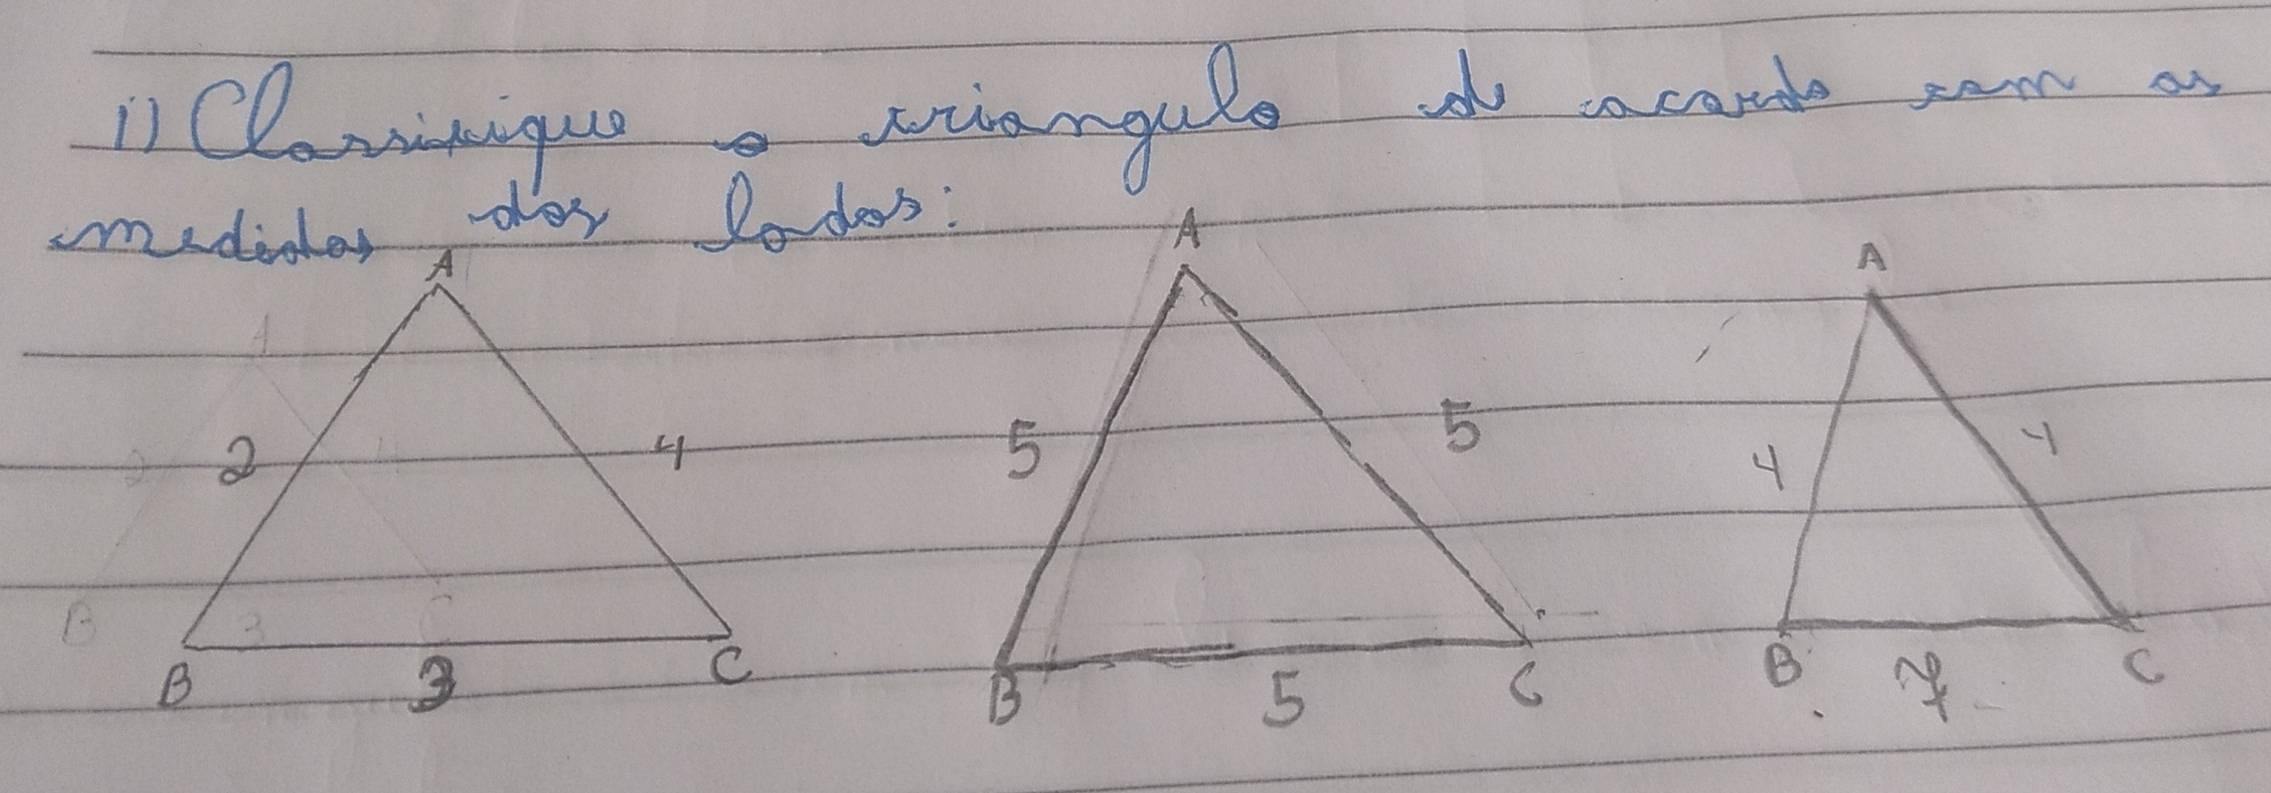 1) Classifique o triangulo de acordo com as
medidas dos lados:
A
2
4
B
3
C
A
5
5
B
5
C
A
4
4
B
7
C